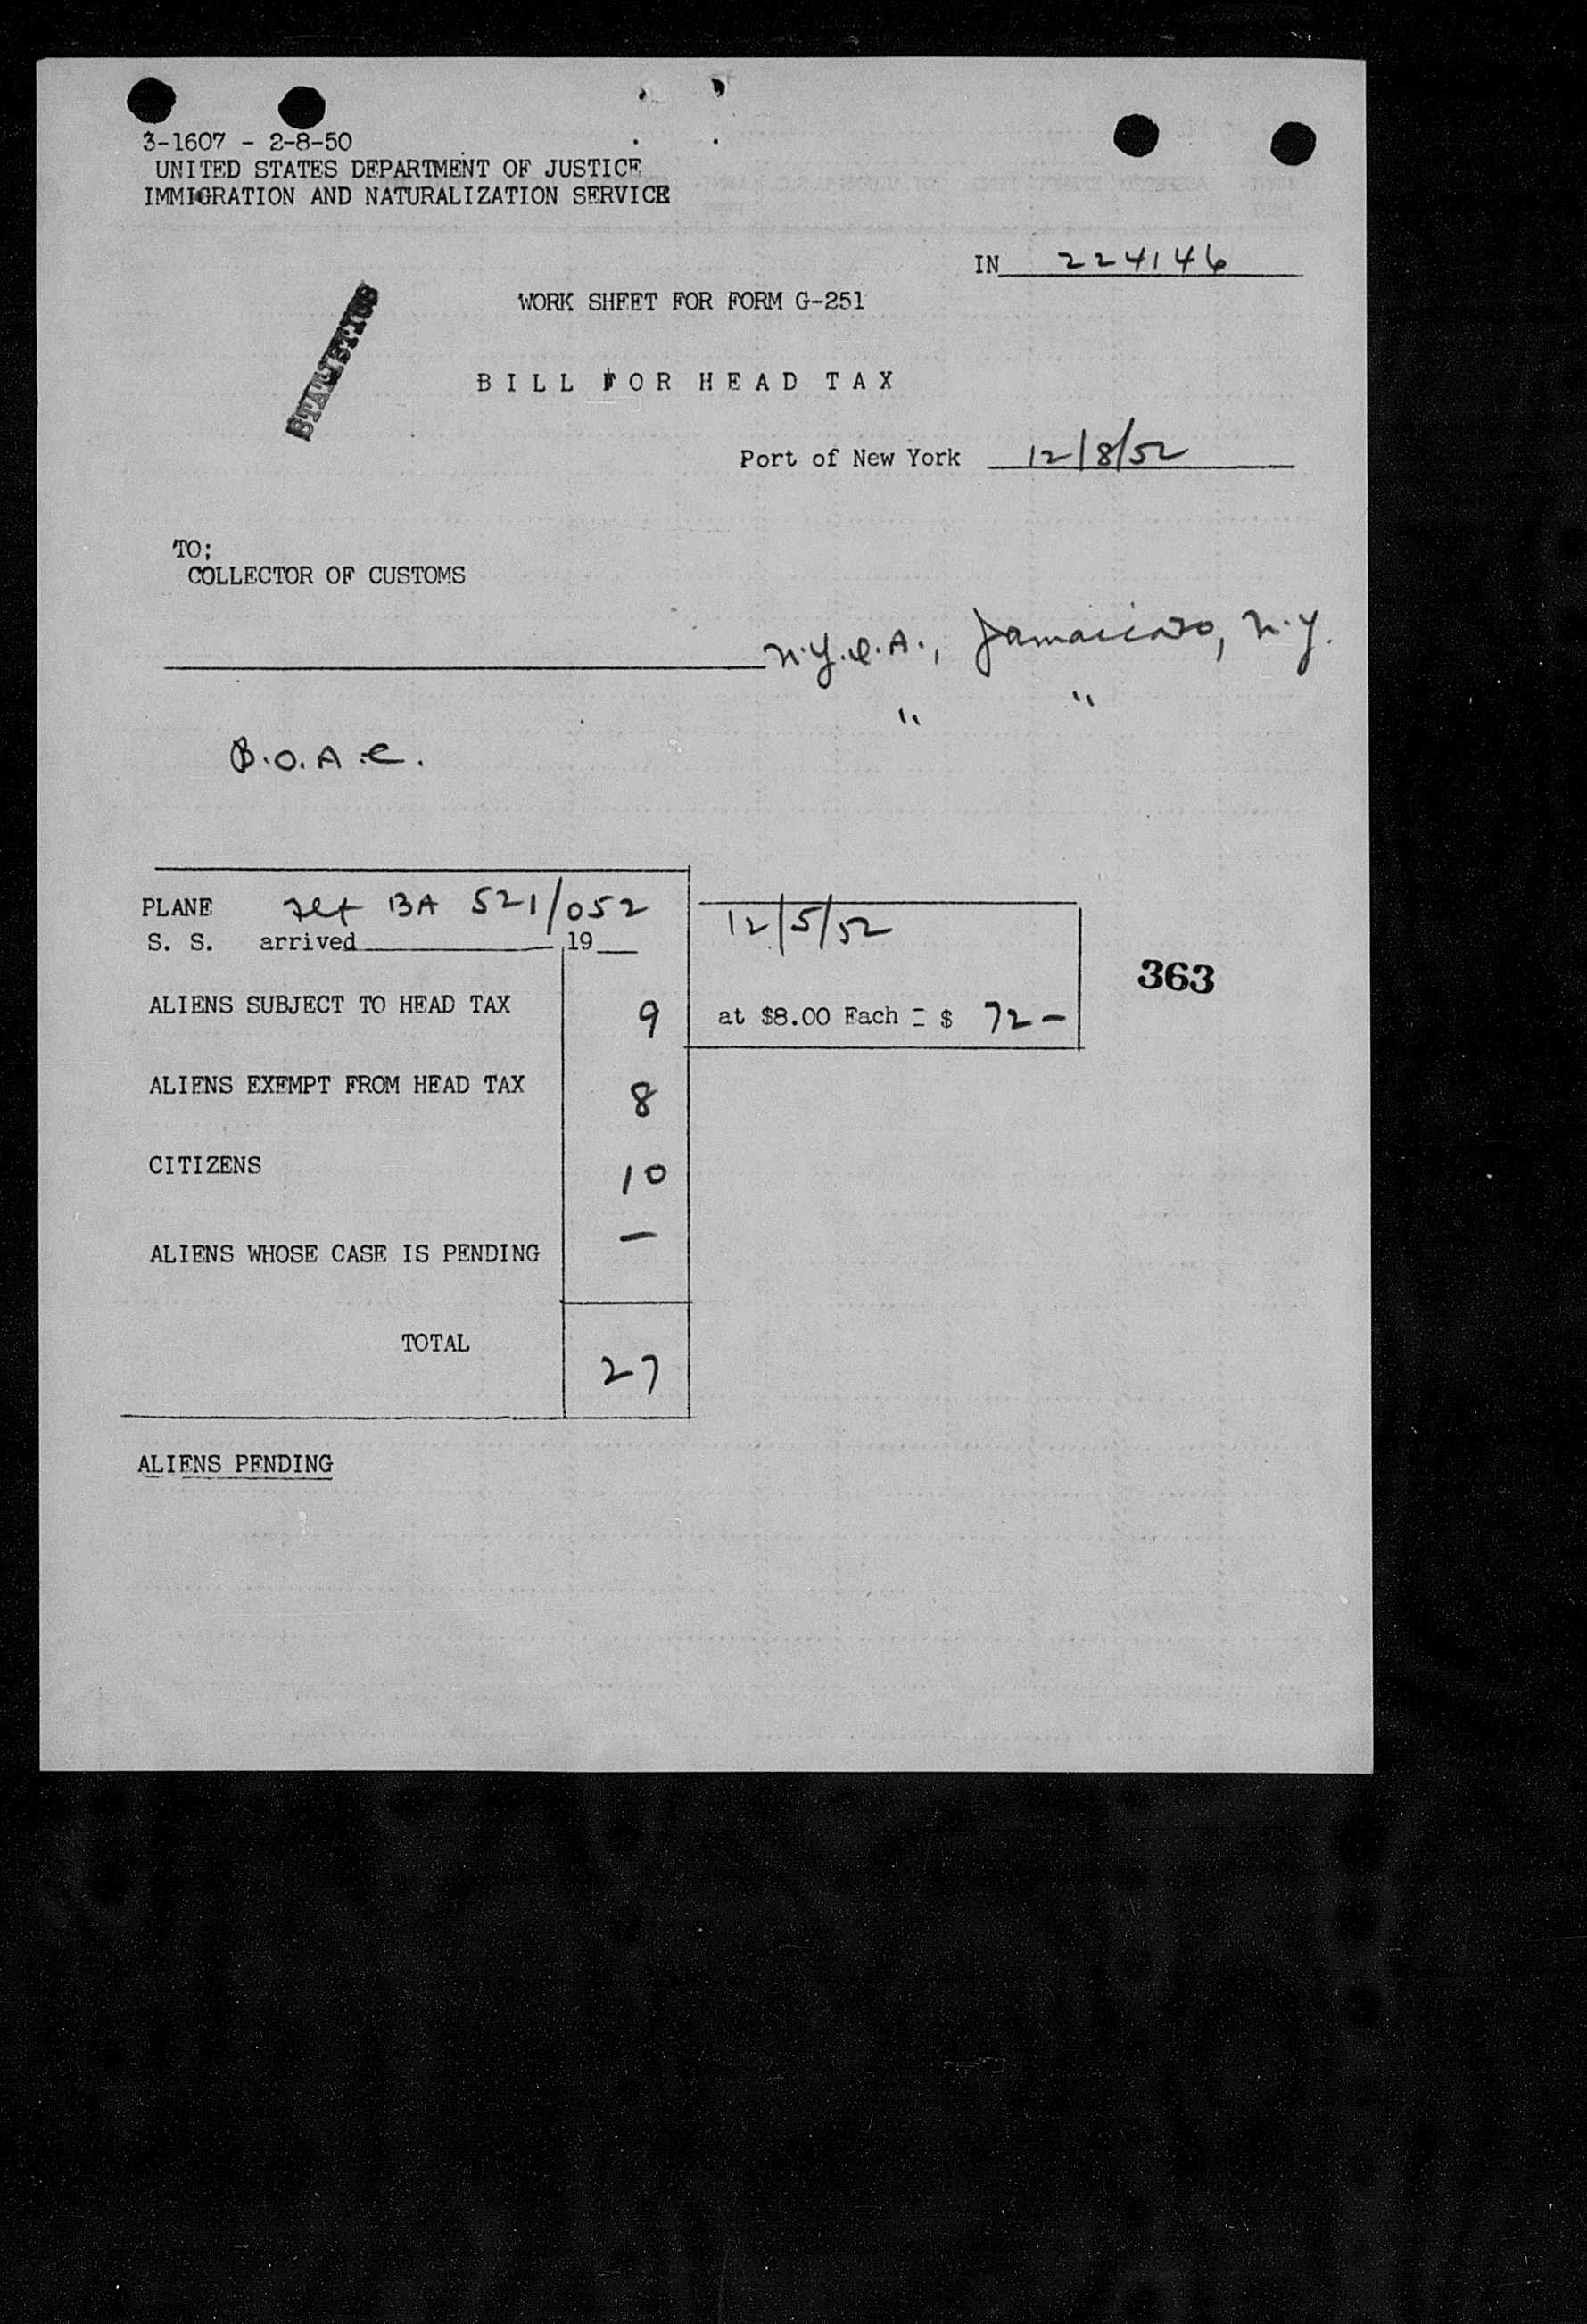 3-1607 - 2-8-50
UNITED STATES DEPARTMENT OF JUSTICE
IMMIGRATION AND NATURALIZATION SERVICE
IN 224146
WORK SHEET FOR FORM G-251
STATISTICS
BILL FOR HEAD TAX
Port of New York 12/8/52
TO;
COLLECTOR OF CUSTOMS
N.Y. N.Y.
" "
B.O.A.C.
PLANE BA 521/052
12/5/52
S. S. arrived 19
363
ALIENS SUBJECT TO HEAD TAX 9 at $8.00 Each = $ 72 -
ALIENS EXEMPT FROM HEAD TAX 8
CITIZENS 10
ALIENS WHOSE CASE IS PENDING —
TOTAL 27
ALIENS PENDING